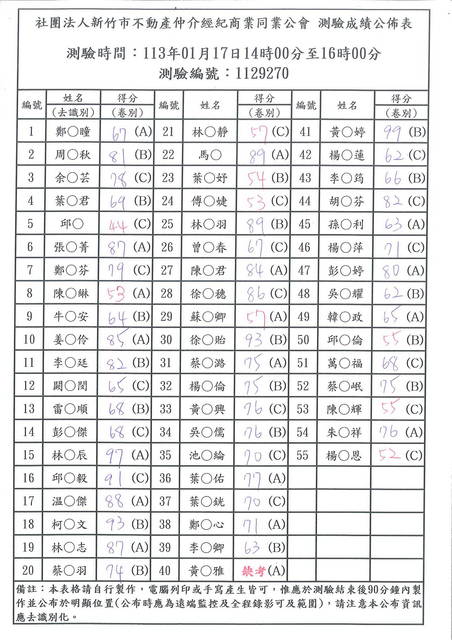 社團法人新竹市不動產仲介經紀商業同業公會 測驗成績公佈表
測驗時間：113年01月17日14時00分至16時00分
測驗編號：1129270
編號 姓名(去識別) 得分(卷別) 編號 姓名(去識別) 得分(卷別) 編號 姓名(去識別) 得分(卷別)
1 鄭○曈 67 (A) 21 林○靜 57 (C) 41 黃○婷 99 (B)
2 周○秋 81 (B) 22 馬○ 89 (A) 42 楊○蓮 62 (C)
3 余○芸 78 (C) 23 葉○妤 54 (B) 43 李○筠 66 (B)
4 葉○君 69 (B) 24 傅○婕 53 (C) 44 胡○芬 82 (C)
5 邱○ 44 (C) 25 林○羽 89 (B) 45 孫○利 63 (A)
6 張○菁 87 (A) 26 曾○春 67 (C) 46 楊○萍 71 (C)
7 鄭○芬 79 (C) 27 陳○君 84 (A) 47 彭○婷 80 (A)
8 陳○綝 53 (A) 28 徐○穗 86 (C) 48 吳○耀 62 (B)
9 牛○安 64 (B) 29 蘇○卿 57 (A) 49 韓○政 65 (A)
10 姜○伶 85 (A) 30 徐○貽 93 (B) 50 邱○倫 55 (B)
11 李○廷 82 (B) 31 蔡○潞 75 (A) 51 萬○福 68 (C)
12 闕○閔 65 (C) 32 楊○倫 75 (B) 52 蔡○岷 75 (B)
13 雷○順 68 (B) 33 黃○興 76 (C) 53 陳○輝 55 (C)
14 彭○傑 68 (C) 34 吳○儒 76 (B) 54 朱○祥 76 (A)
15 林○辰 97 (A) 35 池○綸 70 (C) 55 楊○恩 52 (C)
16 邱○毅 91 (C) 36 葉○佑 77 (A)
17 溫○傑 88 (A) 37 葉○銚 70 (C)
18 柯○文 93 (B) 38 鄭○心 71 (A)
19 林○志 87 (A) 39 李○卿 63 (B)
20 蔡○羽 74 (B) 40 黃○雅 缺考 (A)
備註：本表格請自行製作，電腦列印或手寫產生皆可，惟應於測驗結束後90分鐘內製
作並公布於明顯位置(公布時應為遠端監控及全程錄影可及範圍)，請注意本公布資訊
應去識別化。